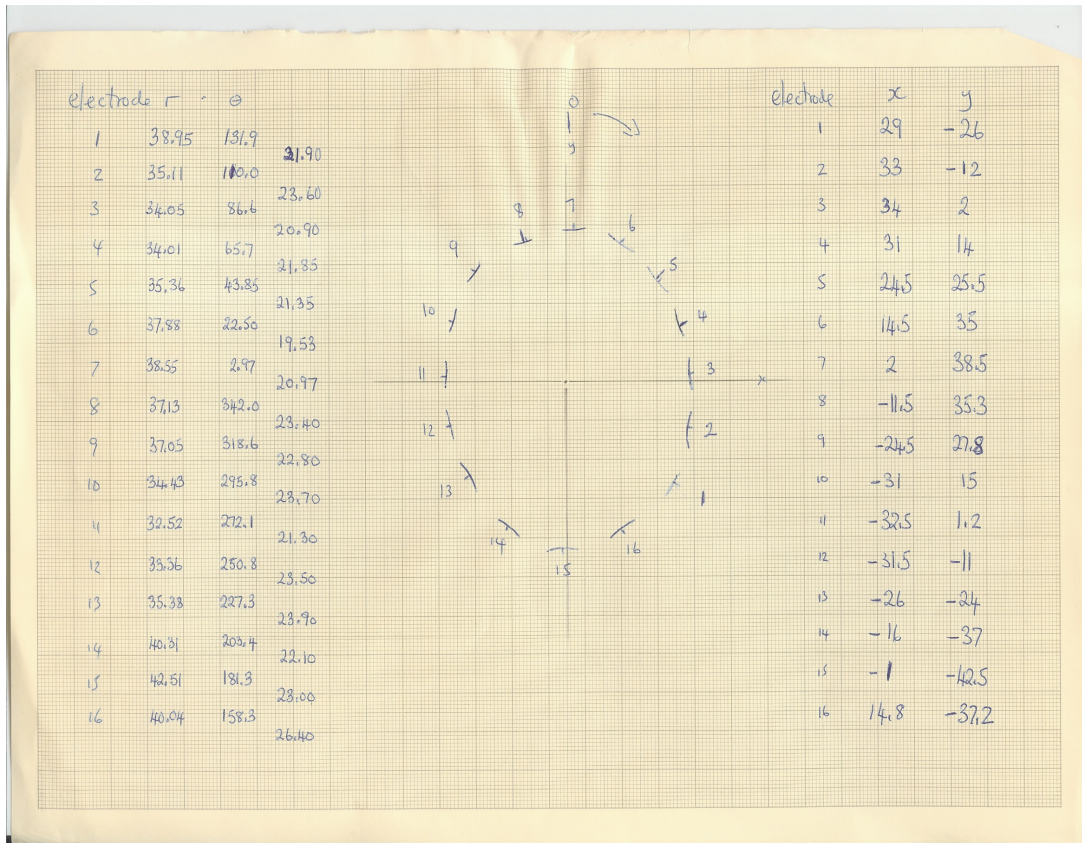 electrode r θ
1 38.95 131.9
21.90
2 35.11 110.0
23.60
3 34.05 86.6
20.90
4 34.01 65.7
21.85
5 35.36 43.85
21.35
6 37.88 22.50
19.53
7 38.55 2.97
20.97
8 37.13 342.0
23.40
9 37.05 318.6
22.80
10 34.43 295.8
23.70
11 32.52 272.1
21.30
12 33.36 250.8
23.50
13 35.38 227.3
23.90
14 40.31 203.4
22.10
15 42.51 181.3
23.00
16 40.04 158.3
26.40
0
y
8 7 6
9 5
10 4
11 3 x
12 2
13 1
14 16
15
electrode x y
1 29 -26
2 33 -12
3 34 2
4 31 14
5 24.5 25.5
6 14.5 35
7 2 38.5
8 -11.5 35.3
9 -24.5 27.8
10 -31 15
11 -32.5 1.2
12 -31.5 -11
13 -26 -24
14 -16 -37
15 -1 -42.5
16 14.8 -37.2